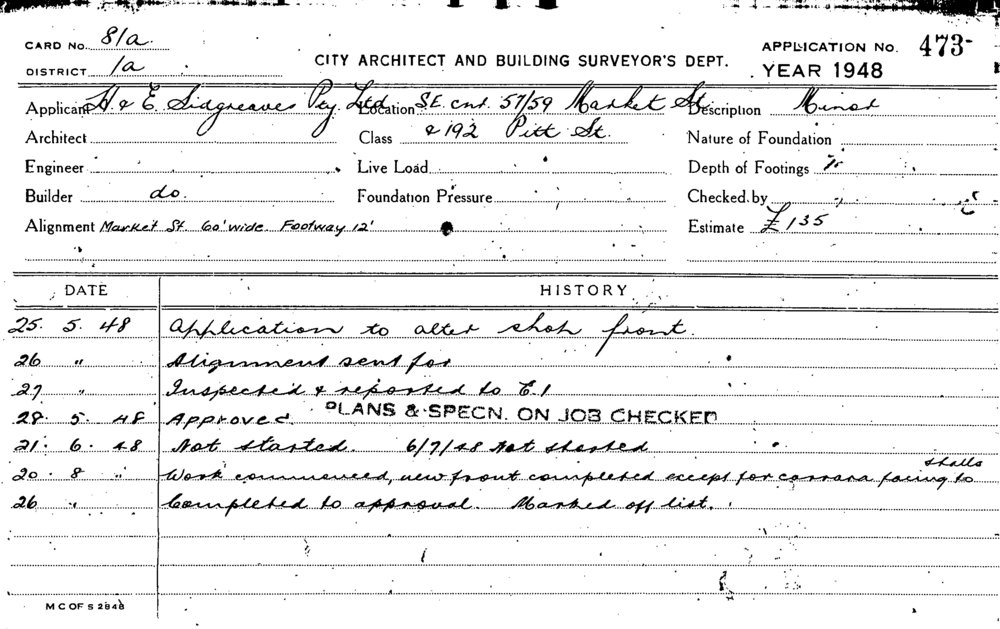 CARD No. 81a.
DISTRICT 1a
CITY ARCHITECT AND BUILDING SURVEYOR'S DEPT.
APPLICATION No. 473-
YEAR 1948
Applicant H & E. Sidgreaves Pty. Ltd Location S.E. cnr. 57/59 Market St. Description Minor
Architect Class & 192 Pitt St. Nature of Foundation
Engineer Live Load Depth of Footings
Builder do. Foundation Pressure Checked by
Alignment Market St. 60' wide. Footway 12' Estimate £135
DATE HISTORY
25. 5. 48 Application to alter shop front.
26 " Alignment sent for
27 " Inspected & reported to E.1
28. 5. 48 Approved. PLANS & SPECN. ON JOB CHECKED
21. 6. 48 Not started. 6/7/48 Not started
stalls
20. 8 " Work commenced, new front completed except for carrara facing to
26 " Completed to approval. Marked off list.
M C OF S 2848